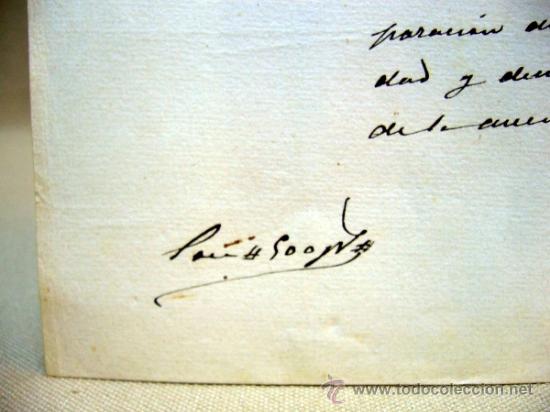 paración d
dad y dem
de la
Son # 500 #
www.todocoleccion.net